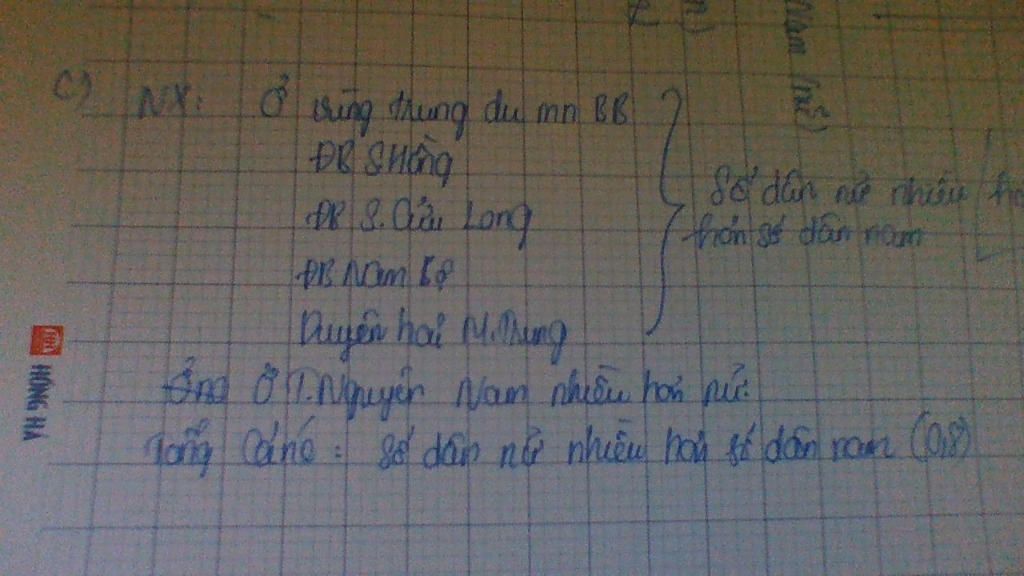 c) NX: Ở vùng trung du mn BB
ĐB S.Hồng
ĐB S. Cửu Long
ĐB Nam Bộ
Duyên hải M.Trung
Số dân nữ nhiều
hơn số dân nam
Ở T.Nguyên Nam nhiều hơn nữ.
Tổng Cả nc : số dân nữ nhiều hơn số dân nam (0,8)
HỒNG HÀ